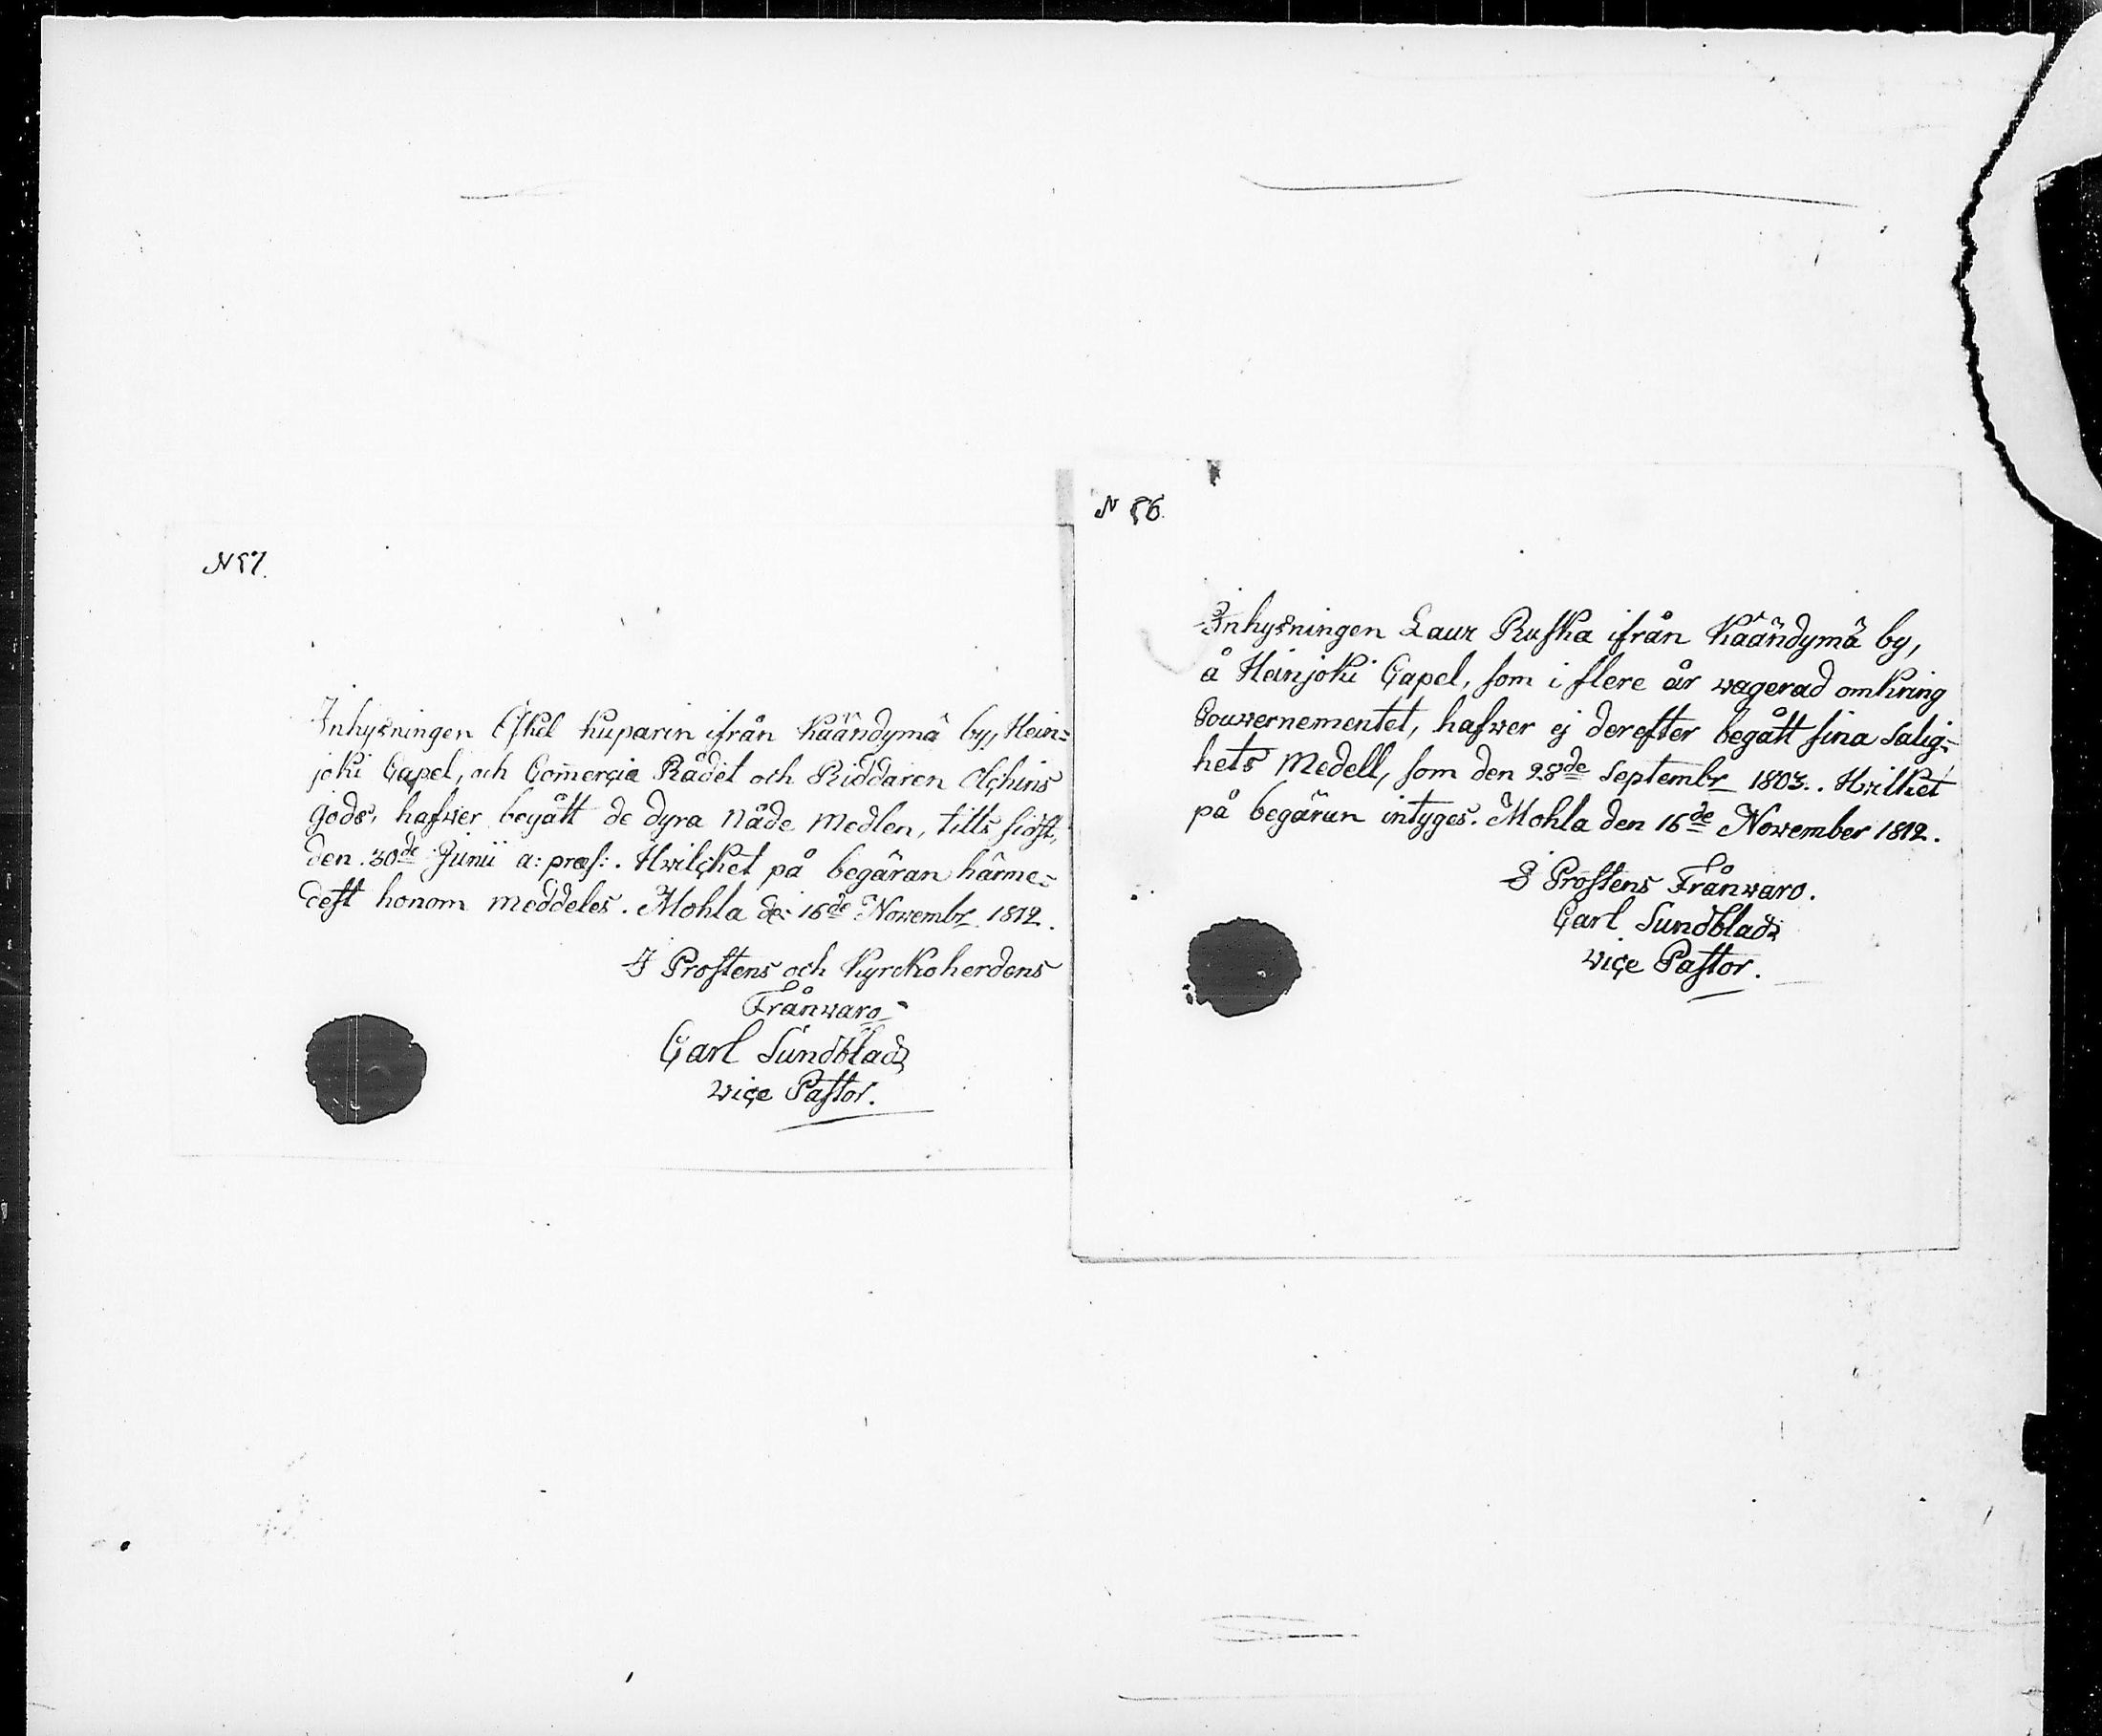 N 57.
Inhysningen Eskel Kuparin ifrån Käändymä by, Hein=
joki Capel, och Comercie Rådet och Riddaren Olchins
gods, hafwer begått de dyra Nåde Medlen, tills sidst,
den 30de Junii a: præs:. Hwilcket på begäran härme=
dest honom meddeles. Mohla de: 16de Novembr 1812.
I Prostens och Kyrckoherdens
Frånwaro
Carl Sundblad
vice Pastor.
N 56.
Inhysningen Laur Ruska ifrån Käändymä by,
å Heinjoki Capel, som i flere år wagerad omkring
Gouvernementet, hafwer ej derefter begått sina Salig=
hets Medell, som den 28de Septembr 1803.. Hwilket
på begäran intyges. Mohla den 16de November 1812.
I Prostens Frånwaro.
Carl Sundblad
vice Pastor.